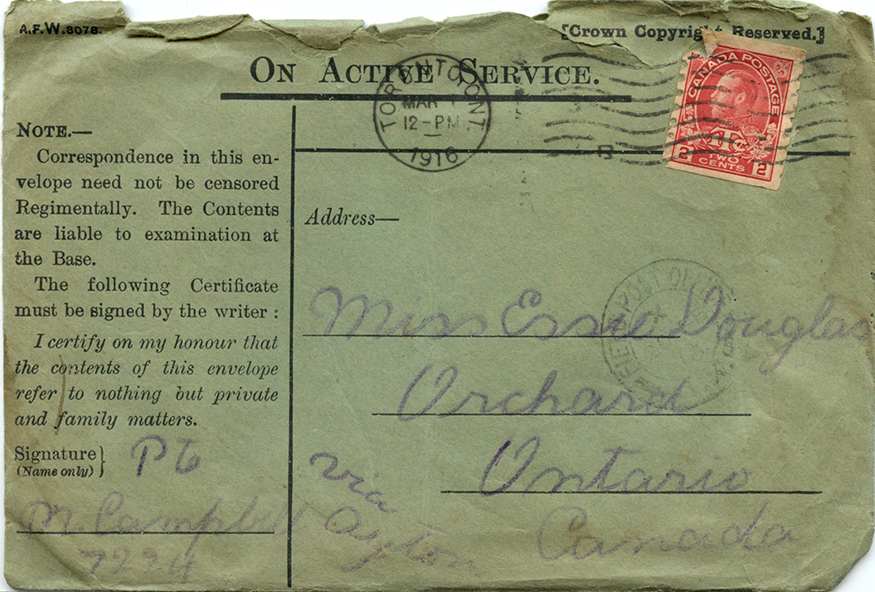 A.F.W.3078.
[Crown Copyright Reserved.]
ON ACTIVE SERVICE.
TORONTO ONT
MAR
12-PM
1916
CANADA POSTAGE
2 TWO CENTS 2
NOTE.—
Correspondence in this en-
velope need not be censored
Regimentally. The Contents
are liable to examination at
the Base.
The following Certificate
must be signed by the writer :
I certify on my honour that
the contents of this envelope
refer to nothing but private
and family matters.
Signature
(Name only)
Pte
M. Campbell
7224
Address—
FIELD POST OFFICE
Miss Essie Douglas
Orchard
Ontario
Canada
via
Ayton